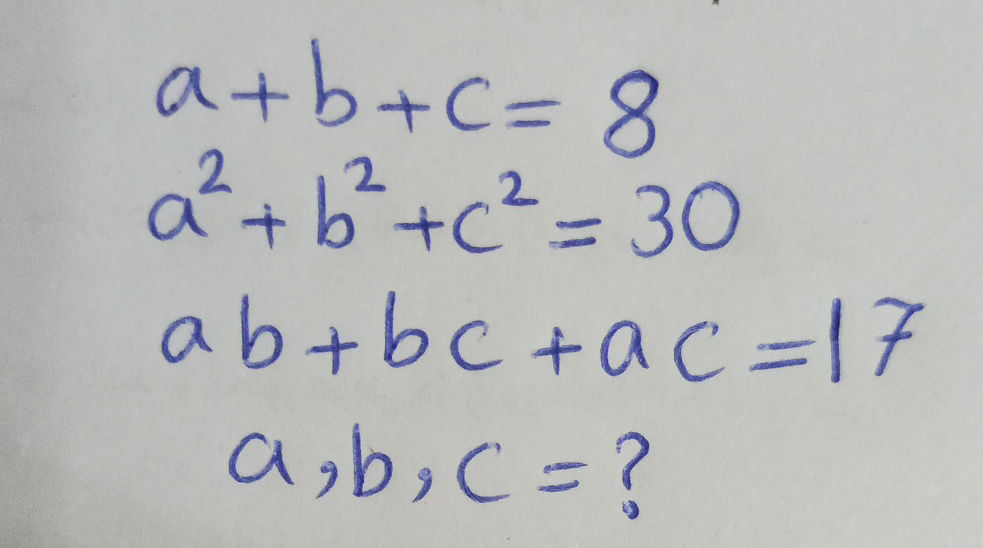 a+b+c= 8
a²+b²+c²=30
ab+bc+ac=17
a,b,c=?